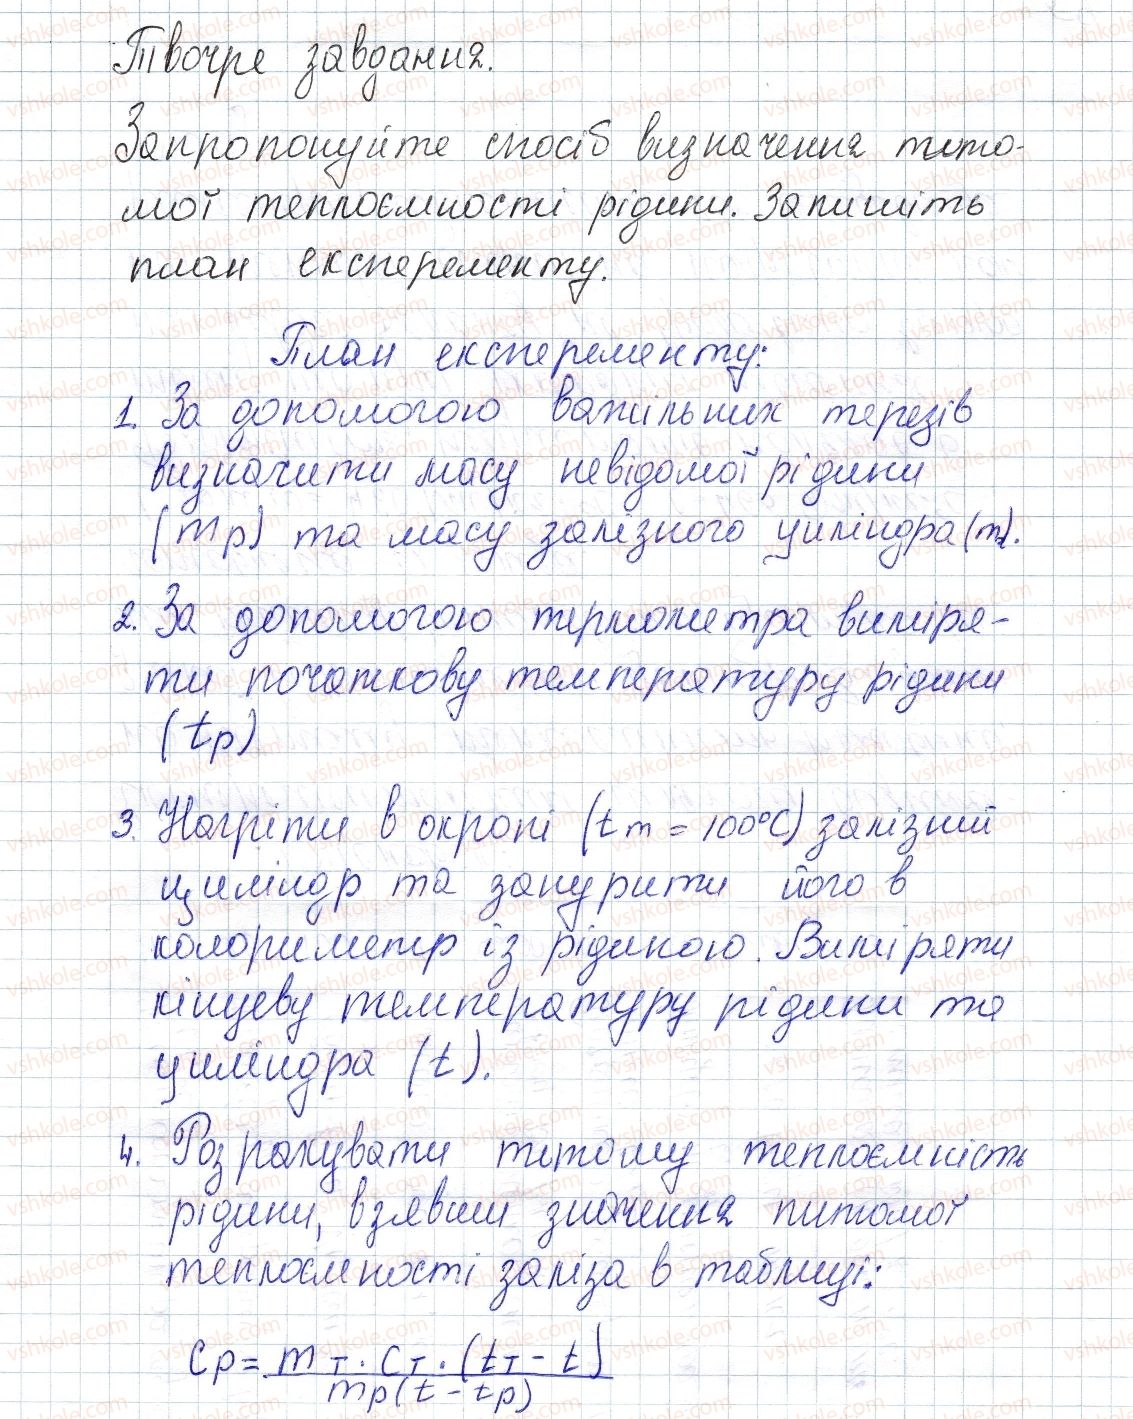 Твочре завдання.
Запропонуйте спосіб визначення пито-
мої теплоємності рідини. Запишіть
план експеременту.
План експеременту:
1. За допомогою важільних терезів
визначити масу невідомої рідини
(mр) та масу залізного циліндра (mт).
2. За допомогою термометра виміря-
ти початкову температуру рідини
(tр)
3. Нагріти в окропі (tт = 100°C) залізний
циліндр та занурити його в
колориметр із рідиною. Виміряти
кінцеву температуру рідини та
циліндра (t).
4. Розрахувати питому теплоємність
рідини, взявши значення питомої
теплоємності заліза в таблиці:
Cр = mт · Cт · (tт - t)
mр (t - tр)